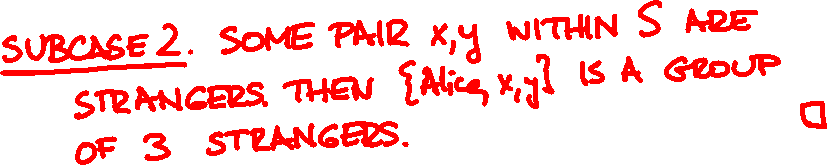 SUBCASE 2. SOME PAIR x,y WITHIN S ARE
STRANGERS. THEN {Alice, x,y} IS A GROUP
OF 3 STRANGERS. □